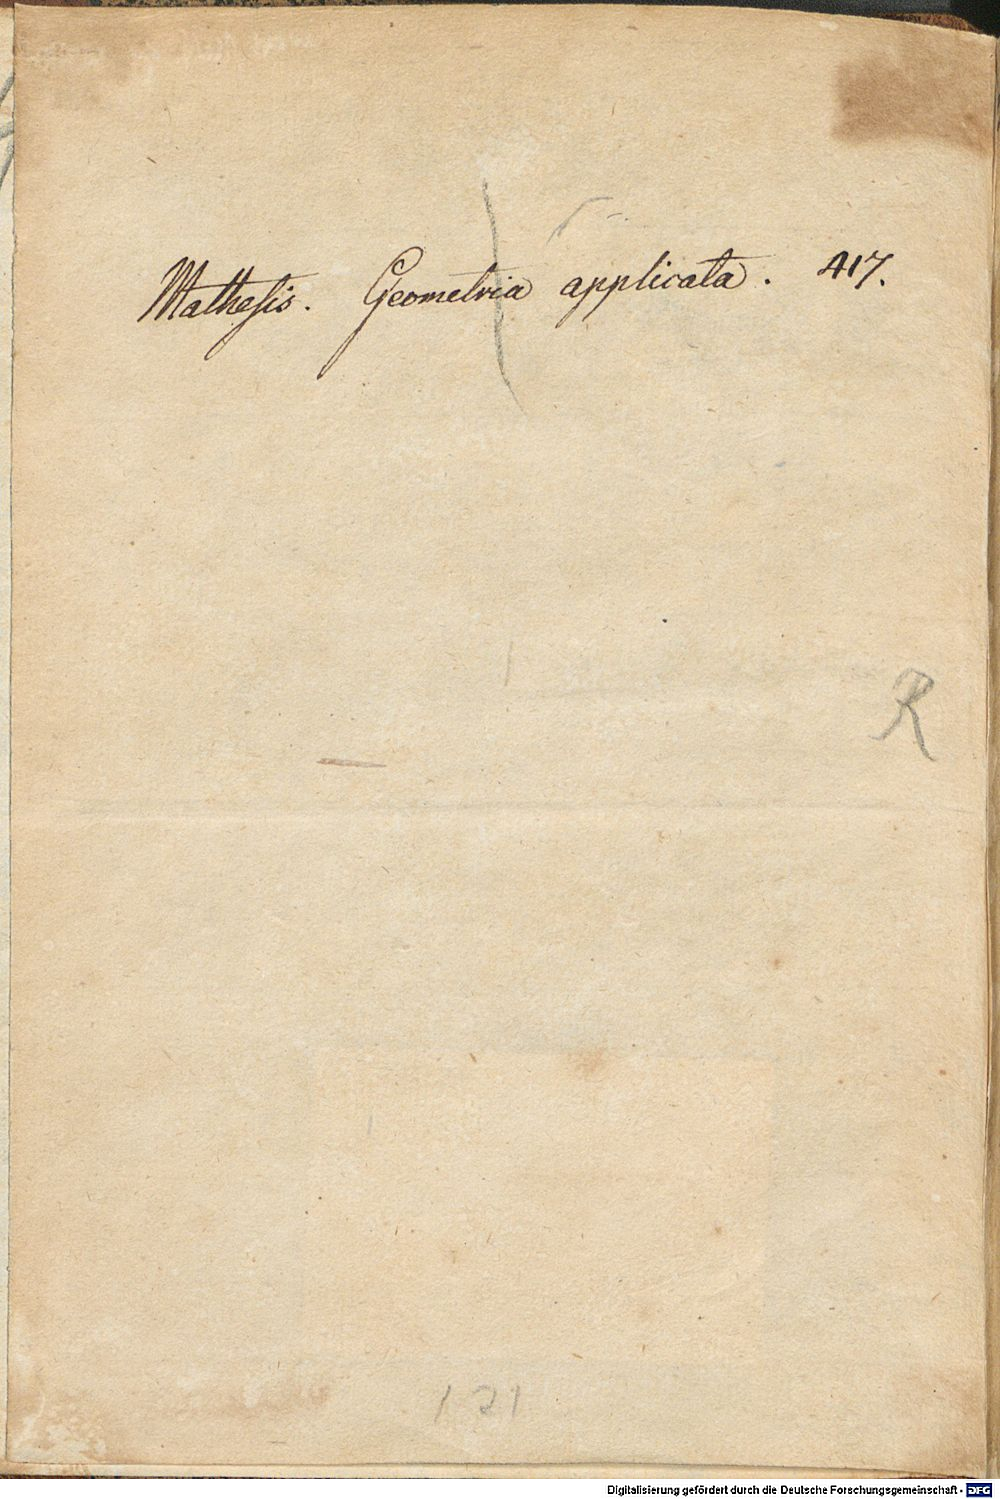 Mathesis. Geometria applicata. 417.
R
1 21
Digitalisierung gefördert durch die Deutsche Forschungsgemeinschaft - DFG